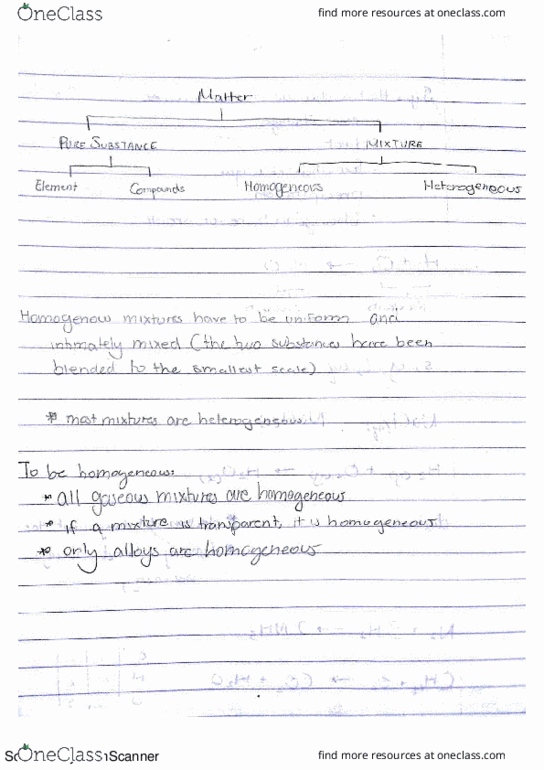 OneClass find more resources at oneclass.com
Matter
PURE SUBSTANCE MIXTURE
Element Compounds Homogeneous Heterogeneous
Homogenous mixtures have to be uniform and
intimately mixed (the two substances have been
blended to the smallest scale)
* most mixtures are heterogeneous.
To be homogeneous:
* all gaseous mixtures are homogeneous
* if a mixture is transparent, it is homogeneous
* only alloys are homogeneous
OneClass Scanner find more resources at oneclass.com